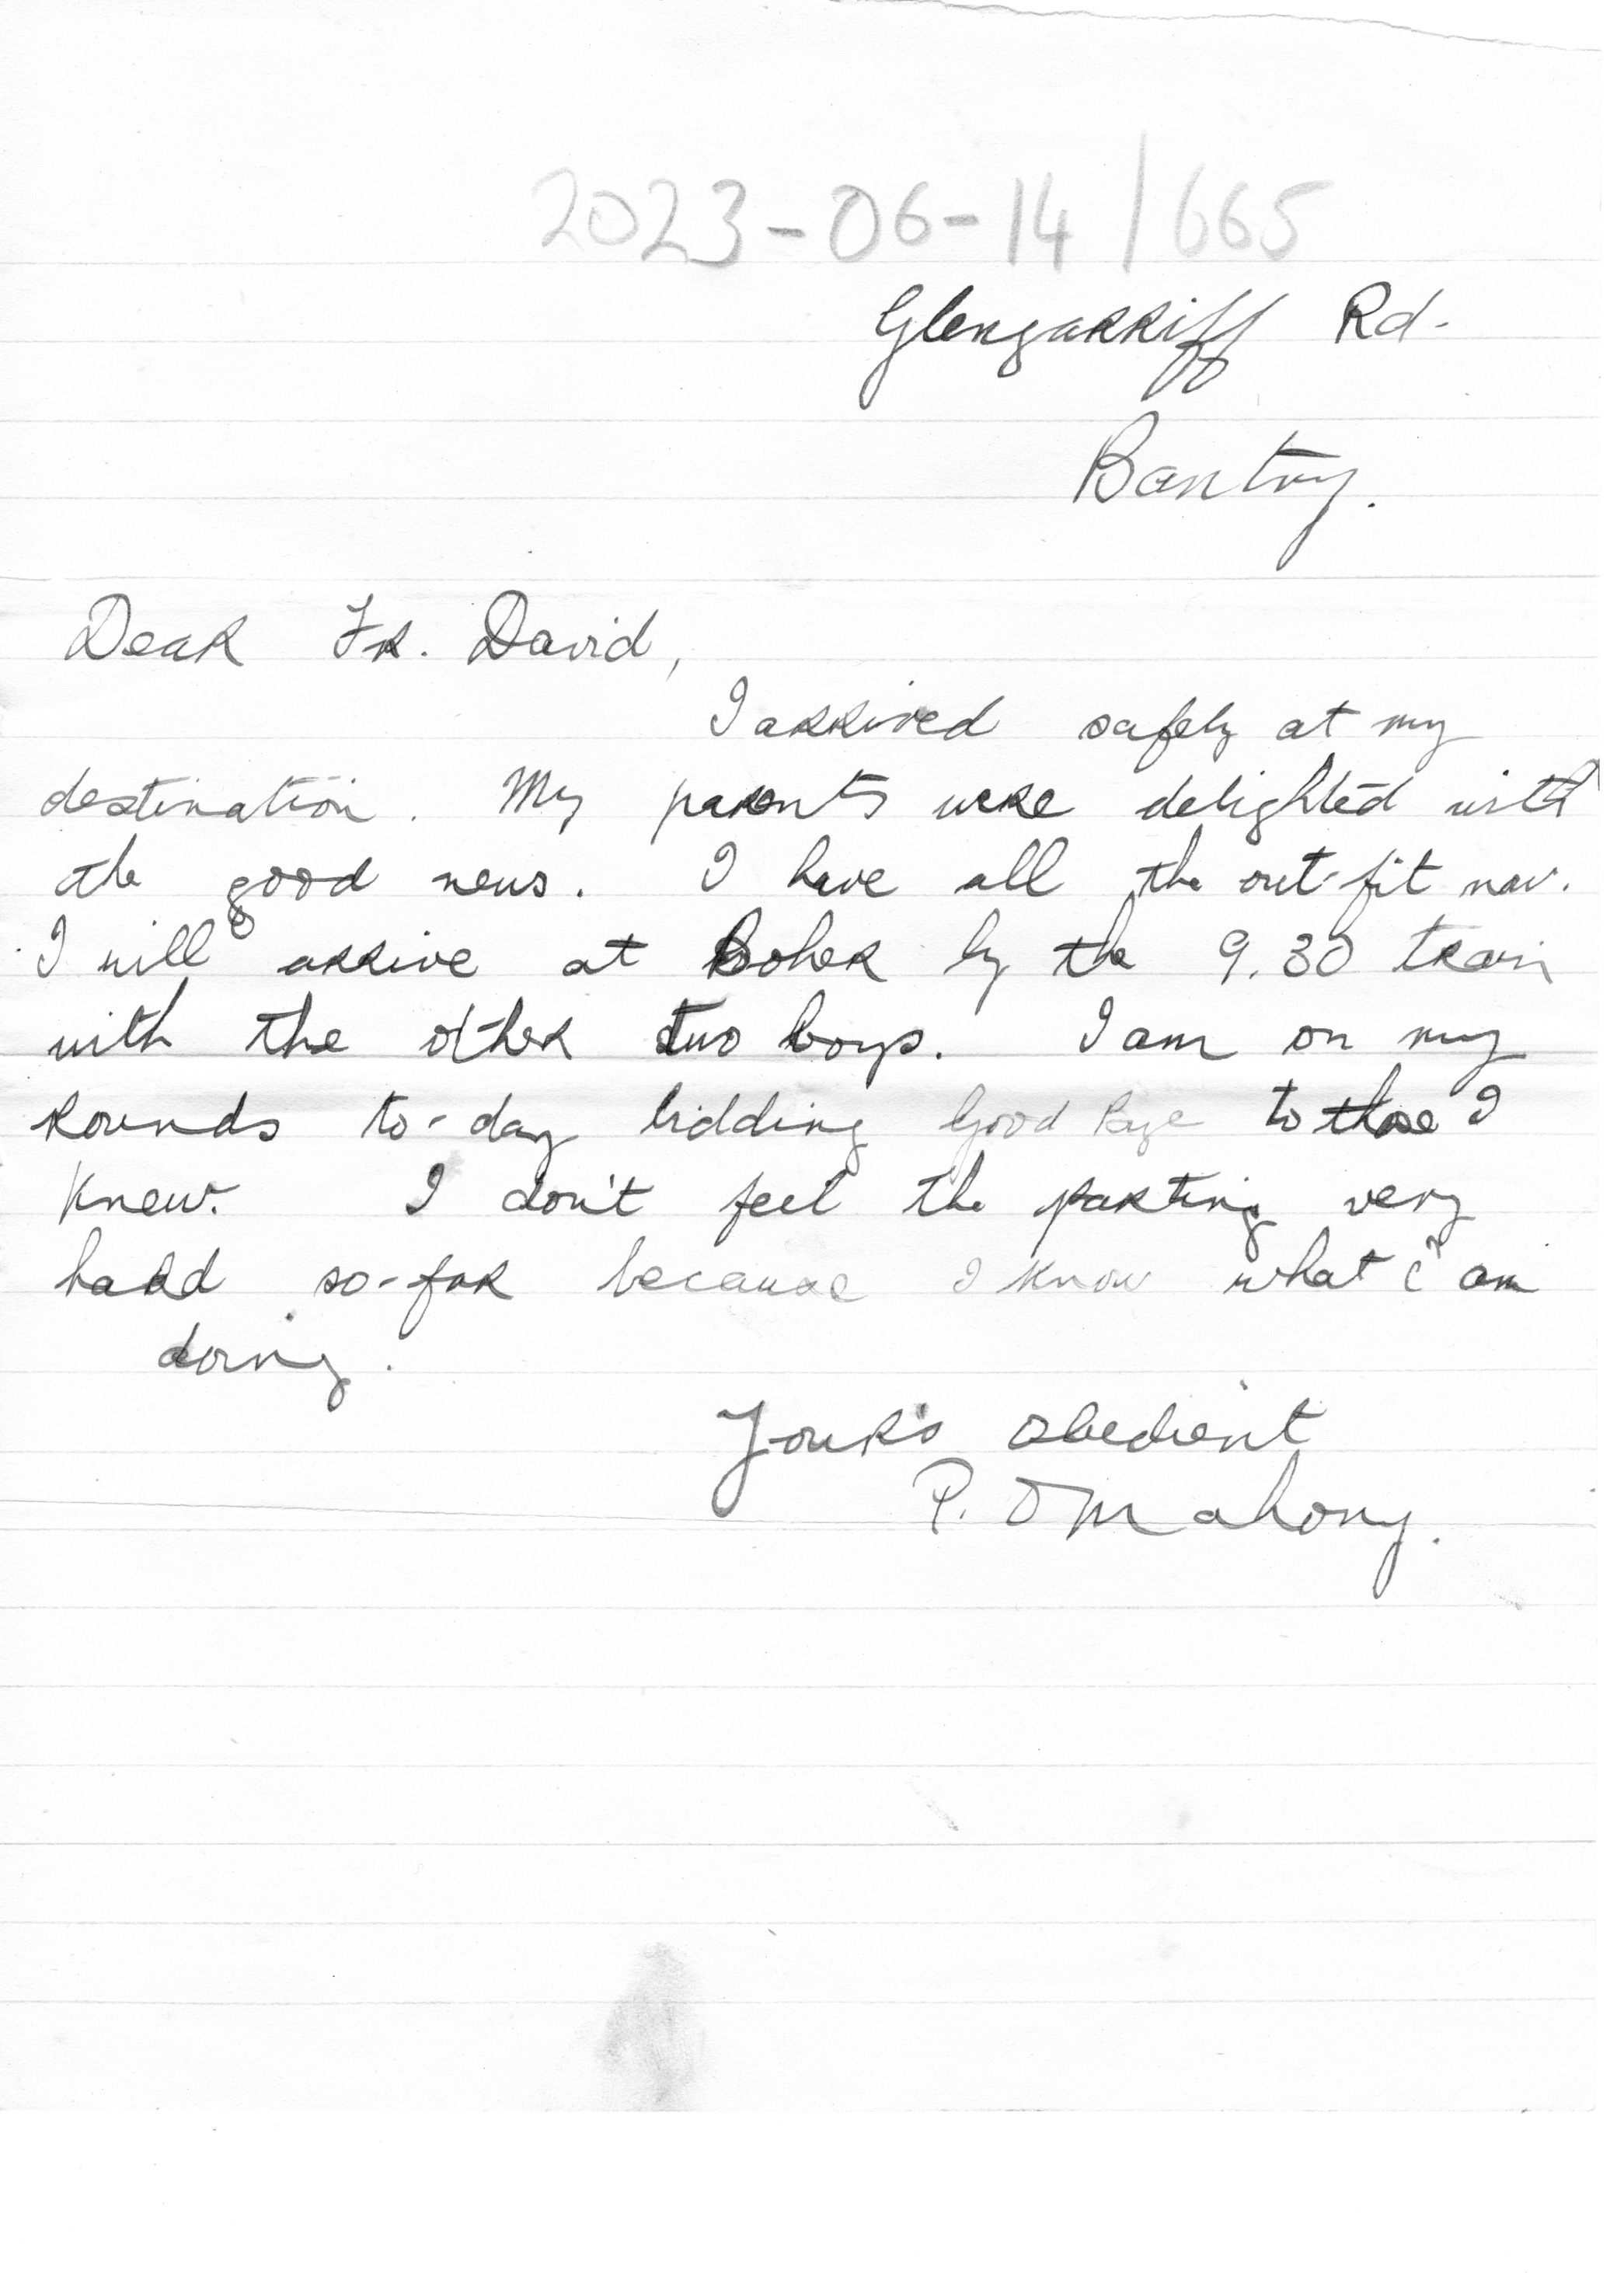 2023-06-14/665
Glengarriff Rd.
Bantry.
Dear Fr. David,
I arrived safely at my
destination. My parents were delighted with
the good news. I have all the out-fit now.
I will arrive at Boher by the 9.30 train
with the other two boys. I am on my
rounds to-day bidding good bye to those I
knew. I don't feel the parting very
hard so-far because I know what I am
doing.
Your's obedient
P. O Mahony.